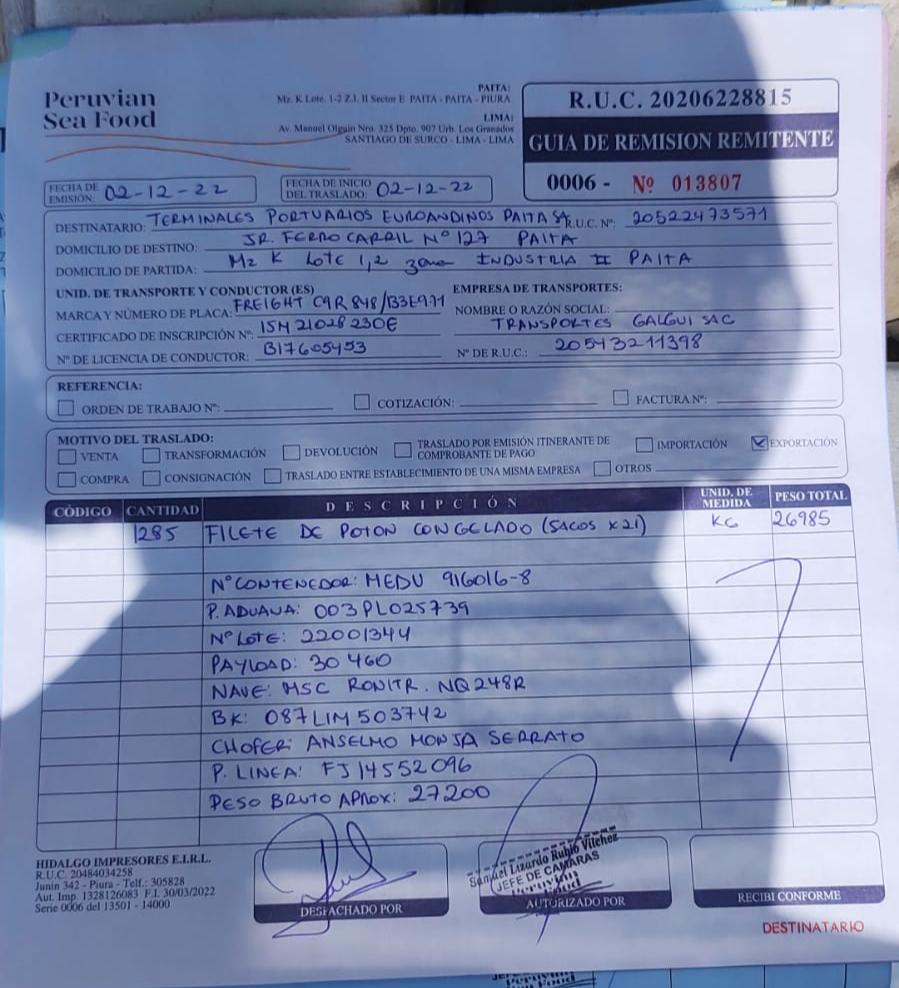 Peruvian
Sea Food
PAITA:
Mz. K Lote. 1-2 Z.I. II Sector E PAITA - PAITA - PIURA
LIMA:
Av. Manuel Olguin Nro. 325 Dpto. 907 Urb. Los Granados
SANTIAGO DE SURCO - LIMA - LIMA
R.U.C. 20206228815
GUIA DE REMISION REMITENTE
0006 - Nº 013807
FECHA DE EMISIÓN: 02-12-22
FECHA DE INICIO DEL TRASLADO: 02-12-22
DESTINATARIO: TERMINALES PORTUARIOS EUROANDINOS PAITA SA. R.U.C. Nº: 20522473571
DOMICILIO DE DESTINO: JR. FERROCARRIL Nº 127 PAITA
DOMICILIO DE PARTIDA: Mz K LOTE 1,2 zona INDUSTRIA II PAITA
UNID. DE TRANSPORTE Y CONDUCTOR (ES)
MARCA Y NÚMERO DE PLACA: FREIGHT C9R848/B3E971
CERTIFICADO DE INSCRIPCIÓN Nº: 15M21028230E
Nº DE LICENCIA DE CONDUCTOR: B17605453
EMPRESA DE TRANSPORTES:
NOMBRE O RAZÓN SOCIAL:
TRANSPORTES GALGUI SAC
Nº DE R.U.C.: 20543211398
REFERENCIA:
ORDEN DE TRABAJO Nº: COTIZACIÓN: FACTURA Nº:
MOTIVO DEL TRASLADO:
VENTA TRANSFORMACIÓN DEVOLUCIÓN TRASLADO POR EMISIÓN ITINERANTE DE COMPROBANTE DE PAGO IMPORTACIÓN EXPORTACIÓN
COMPRA CONSIGNACIÓN TRASLADO ENTRE ESTABLECIMIENTO DE UNA MISMA EMPRESA OTROS
CÓDIGO CANTIDAD DESCRIPCIÓN UNID. DE MEDIDA PESO TOTAL
1285 FILETE DE POTON CONGELADO (SACOS x21) KG 26985
Nº CONTENEDOR: MEDU 916016-8
P. ADUANA: 003PL025739
Nº LOTE: 22001344
PAYLOAD: 30 460
NAVE: MSC RONIT R. NQ248R
BK: 087LIM503742
CHOFER: ANSELMO MONJA SERRATO
P. LINEA: FJ14552096
PESO BRUTO APROX: 27200
HIDALGO IMPRESORES E.I.R.L.
R.U.C. 20484034258
Junin 342 - Piura - Telf.: 305828
Aut. Imp. 1328126083 F.I. 30/03/2022
Serie 0006 del 13501 - 14000
DESPACHADO POR
Samuel Lizardo Rubio Vilchez
JEFE DE CAMARAS
Peruvian
Sea Food
AUTORIZADO POR
RECIBI CONFORME
DESTINATARIO
Peruvian
Sea Food